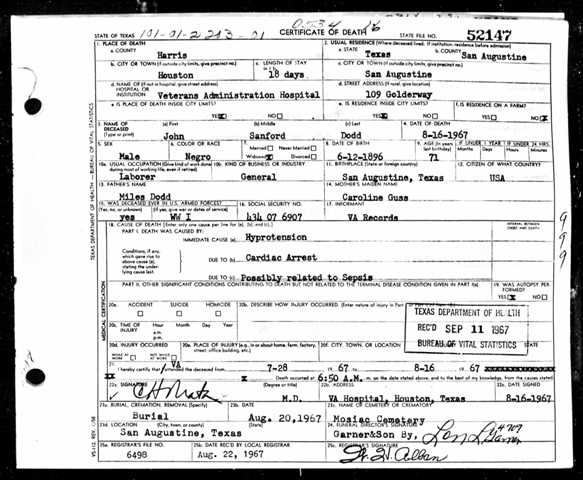 STATE OF TEXAS
CERTIFICATE OF DEATH
STATE FILE NO. 52147
1. PLACE OF DEATH
a. COUNTY Harris
2. USUAL RESIDENCE (Where deceased lived. If institution: residence before admission)
a. STATE Texas
b. COUNTY San Augustine
b. CITY OR TOWN (If outside city limits, give precinct no.) Houston
c. LENGTH OF STAY 18 days
c. CITY OR TOWN (If outside city limits, give precinct no.) San Augustine
d. NAME OF (If not in hospital, give street address) HOSPITAL OR INSTITUTION Veterans Administration Hospital
d. STREET ADDRESS (If rural, give location) 109 Golderway
e. IS PLACE OF DEATH INSIDE CITY LIMITS? YES X NO
e. IS RESIDENCE INSIDE CITY LIMITS? YES X NO
f. IS RESIDENCE ON A FARM? YES NO X
3. NAME OF DECEASED (Type or print)
(a) First John
(b) Middle Sanford
(c) Last Dodd
4. DATE OF DEATH 8-16-1967
5. SEX Male
6. COLOR OR RACE Negro
7. Married Never Married Widowed X Divorced
8. DATE OF BIRTH 6-12-1896
9. AGE (In years last birthday) 71
IF UNDER 1 YEAR Months Days
IF UNDER 24 HRS. Hours Minutes
10a. USUAL OCCUPATION (Give kind of work done during most of working life, even if retired) Laborer
10b. KIND OF BUSINESS OR INDUSTRY General
11. BIRTHPLACE (State or foreign country) San Augustine, Texas
12. CITIZEN OF WHAT COUNTRY? USA
13. FATHER'S NAME Miles Dodd
14. MOTHER'S MAIDEN NAME Caroline Guss
15. WAS DECEASED EVER IN U.S. ARMED FORCES?
(Yes, no, or unknown) yes
(If yes, give war or dates of service) WW I
16. SOCIAL SECURITY NO. 434 07 6907
17. INFORMANT VA Records
18. CAUSE OF DEATH (Enter only one cause per line for (a), (b), and (c).)
INTERVAL BETWEEN ONSET AND DEATH
PART I. DEATH WAS CAUSED BY:
IMMEDIATE CAUSE (a) Hyprotension
Conditions, if any, which gave rise to above cause (a), stating the underlying cause last.
DUE TO (b) Cardiac Arrest
DUE TO (c) Possibly related to Sepsis
PART II. OTHER SIGNIFICANT CONDITIONS CONTRIBUTING TO DEATH BUT NOT RELATED TO THE TERMINAL DISEASE CONDITION GIVEN IN PART I(a)
19. WAS AUTOPSY PERFORMED? YES X NO
20a. ACCIDENT SUICIDE HOMICIDE
20b. DESCRIBE HOW INJURY OCCURRED
20c. TIME OF INJURY Hour a.m. p.m. Month Day Year
TEXAS DEPARTMENT OF HEALTH
REC'D SEP 11 1967
BUREAU OF VITAL STATISTICS
20d. INJURY OCCURRED
WHILE AT WORK NOT WHILE AT WORK
20e. PLACE OF INJURY (e.g., in or about home, farm, factory, street, office building, etc.)
20f. CITY, TOWN, OR LOCATION
21. I hereby certify that VA attended the deceased from 7-28 67 to 8-16 67
Death occurred at 6:50 A.M. on the date stated above, and to the best of my knowledge, from the causes stated
22a. SIGNATURE M.D.
22b. ADDRESS VA Hospital, Houston, Texas
22c. DATE SIGNED 8-16-1967
23a. BURIAL, CREMATION, REMOVAL (Specify) Burial
23b. DATE Aug. 20,1967
23c. NAME OF CEMETERY OR CREMATORY Mosiac Cemetery
23d. LOCATION (City, town, or county) (State) San Augustine, Texas
24. FUNERAL DIRECTOR'S SIGNATURE Garner&Son By,
25a. REGISTRAR'S FILE NO. 6498
25b. DATE REC'D BY LOCAL REGISTRAR Aug. 22, 1967
25c. REGISTRAR'S SIGNATURE
TEXAS DEPARTMENT OF HEALTH — BUREAU OF VITAL STATISTICS
MEDICAL CERTIFICATION
999